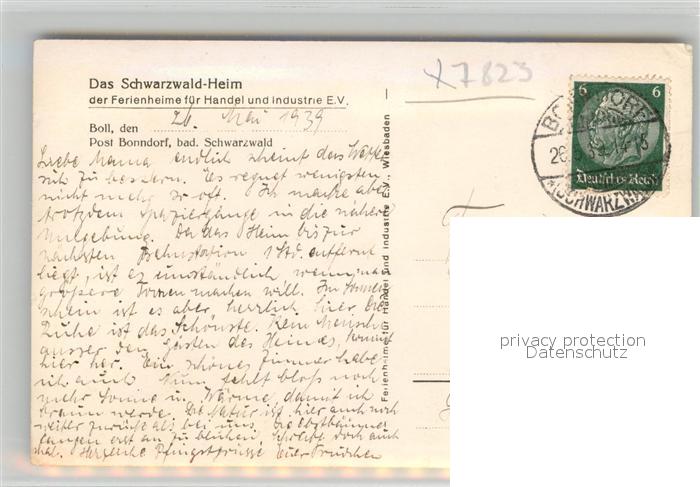 Das Schwarzwald-Heim
der Ferienheime für Handel und Industrie E.V.
Boll, den 26. Mai 1939
Post Bonndorf, bad. Schwarzwald
Liebe Mama endlich scheint das Wetter
sich zu bessern. Es regnet wenigstens
nicht mehr so oft. Ich mache aber
trotzdem Spaziergänge in die nähere
Umgebung. Da das Heim bis zur
nächsten Bahnstation 1 Std. entfernt
liegt, ist es umständlich, wenn man
grössere Touren machen will. Im Sonnen-
schein ist es aber herrlich hier. Die
Ruhe ist das Schönste. Kein Mensch
ausser den Gästen des Heimes, kommt
hier her. Ein schönes Zimmer habe
ich auch. Nun fehlt bloss noch
mehr Sonne u. Wärme, damit ich
braun werde. Die Natur ist hier auch noch
weiter zurück als bei uns. Die Obstbäume
fangen erst an zu blühen. Schreibt doch auch
mal. Herzliche Pfingstgrüsse Euer
Ferienheime für Handel und Industrie E.V., Wiesbaden
x7823
6 6
Deutsches Reich
BONNDORF
26
(SCHWARZWALD)
privacy protection
Datenschutz